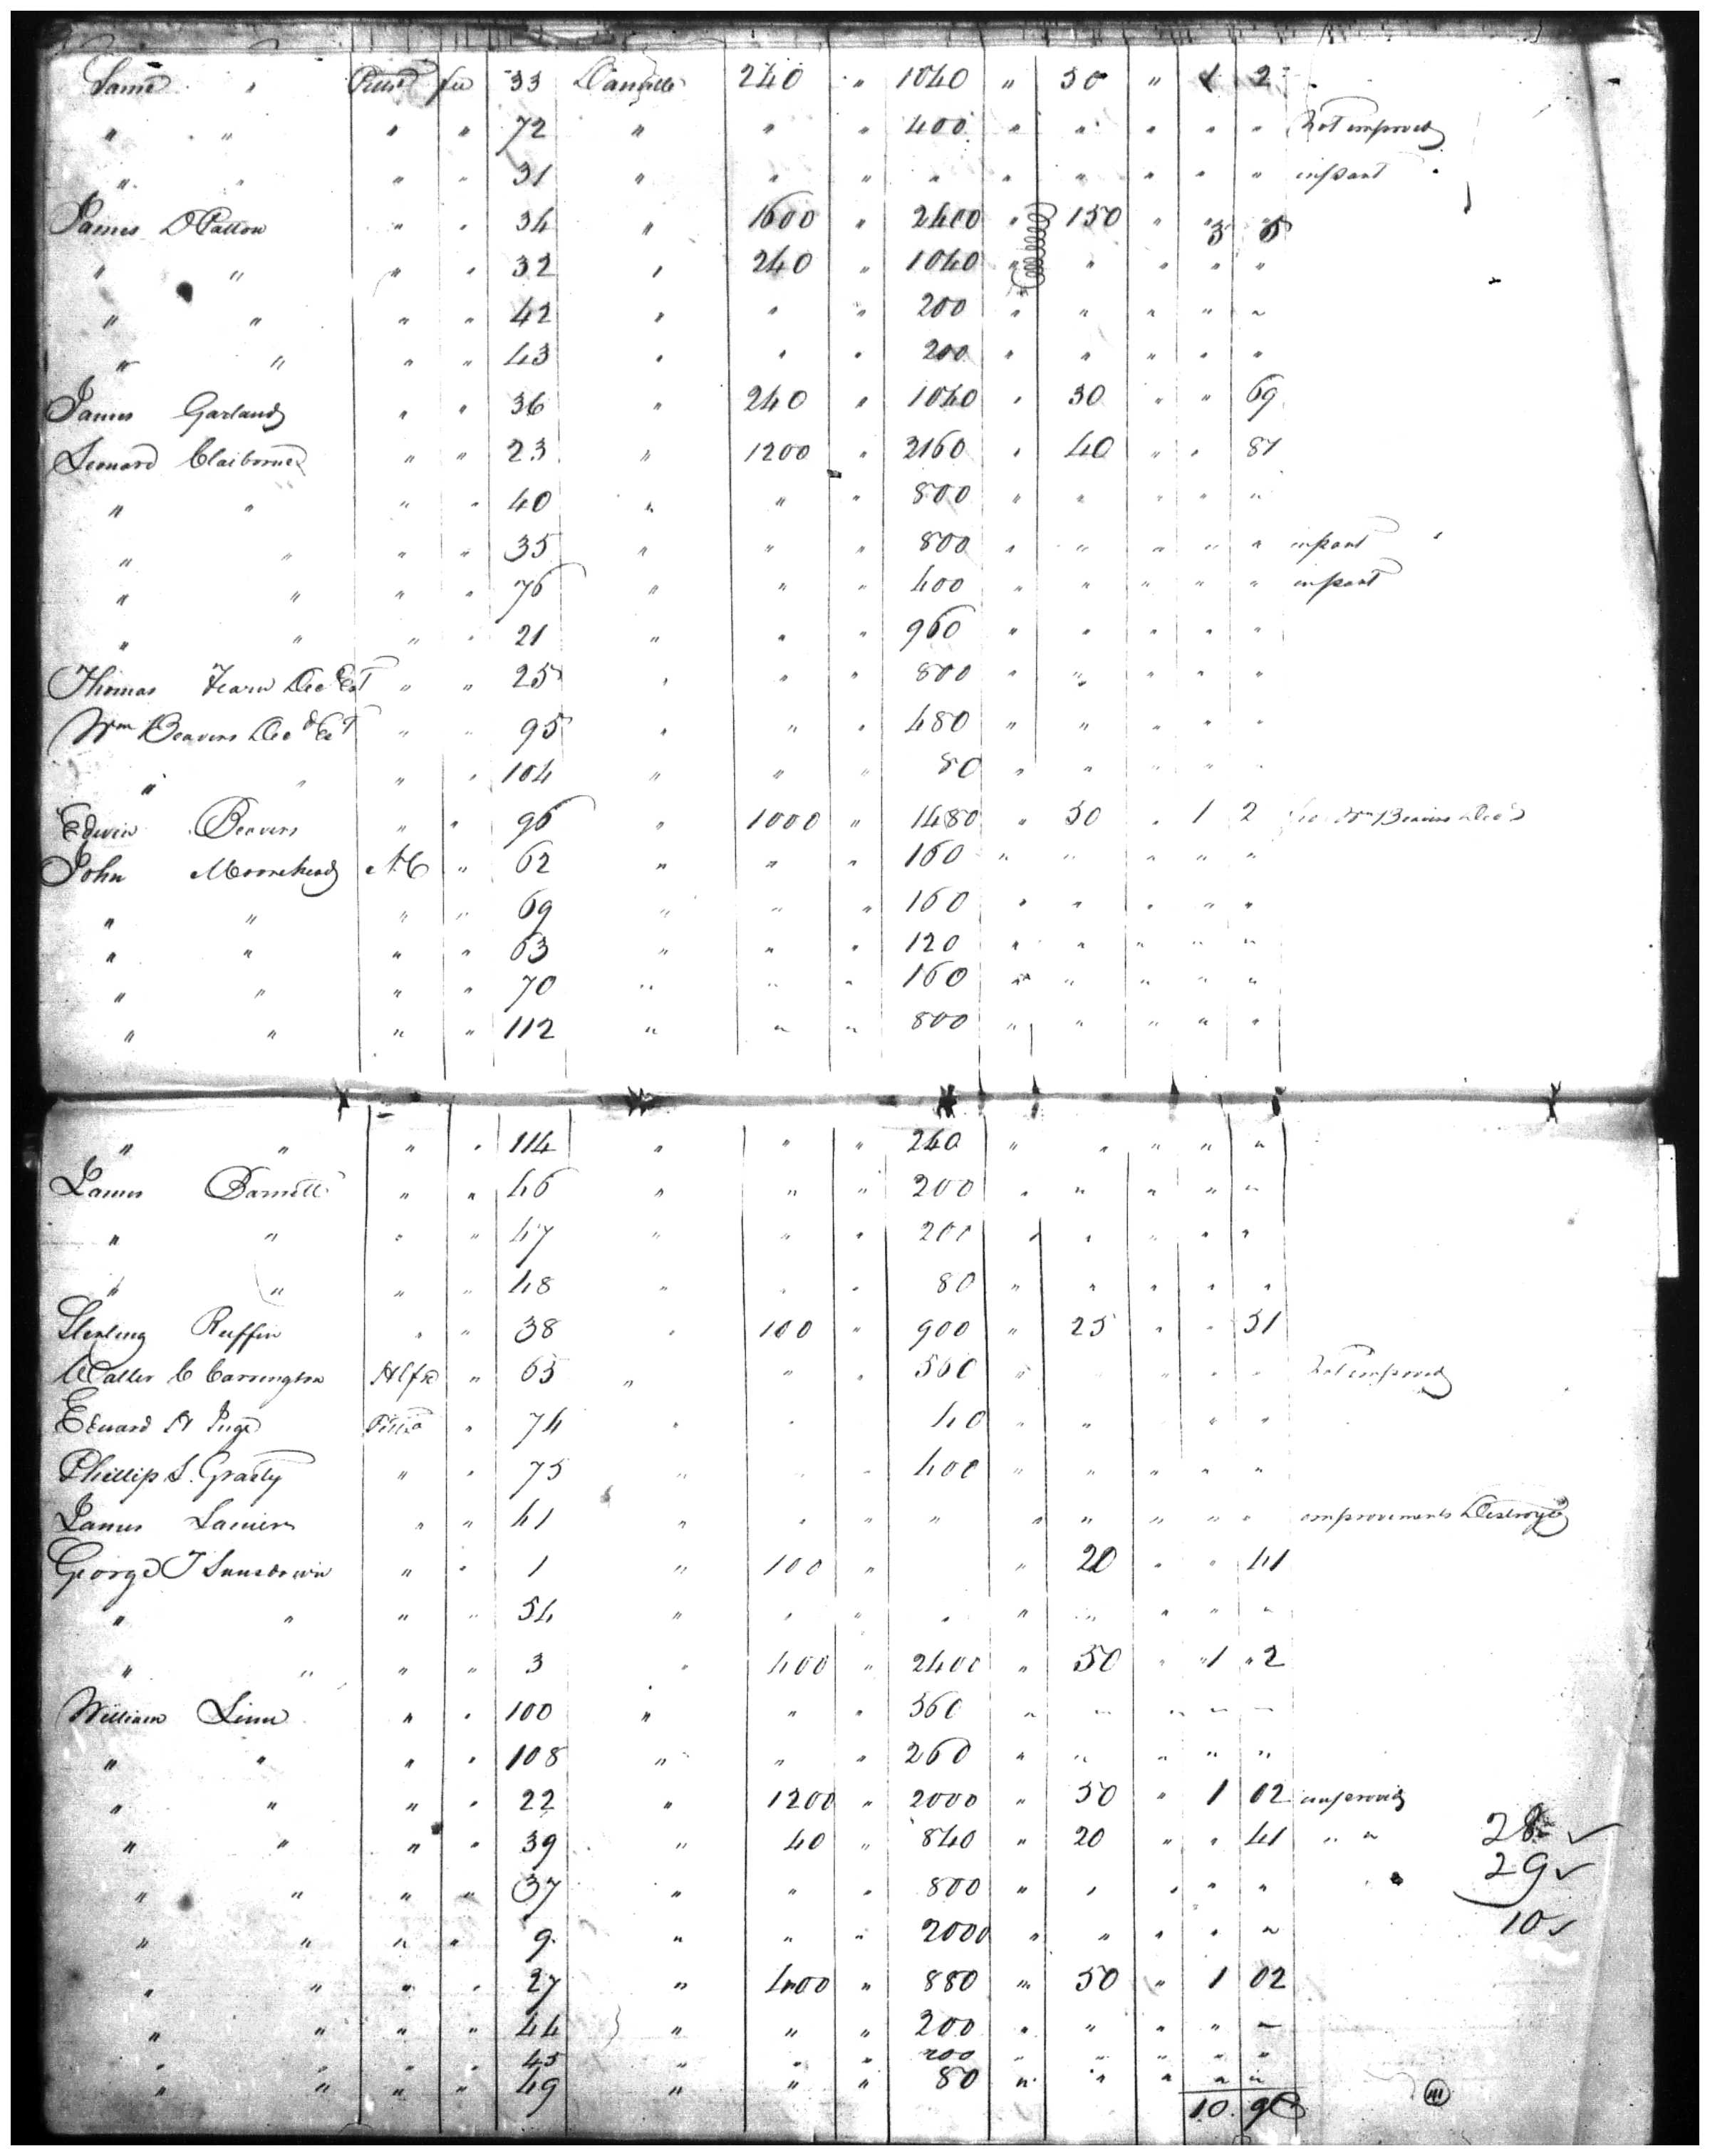 Same " Pitts fee 33 Danville 240 " 1040 " 50 " 1 2
" " " " 72 " " " 400 " " " " " Not improved
" " " " 31 " " " " " " " " " in part
James D Patton " " 34 " 1600 " 2400 " 150 " 3 5
" " " " 32 " 240 " 1040 " " " " "
" " " " 42 " " " 200 " " " " "
" " " " 43 " " " 200 " " " " "
James Garland " " 36 " 240 " 1040 " 30 " " 69
Leonard Claiborne " " 23 " 1200 " 2160 " 40 " " 87
" " " " 40 " " " 800 " " " " "
" " " " 35 " " " 800 " " " " " in part
" " " " 76 " " " 400 " " " " " in part
" " " " 21 " " " 960 " " " " "
Thomas Fearn Dec Est " " 25 " " " 800 " " " " "
Wm Beavers Decd Est " " 95 " " " 480 " " " " "
" " " " 104 " " " 80 " " " " "
Edwin Beavers " " 96 " 1000 " 1480 " 50 " 1 2 Wm Beavers Decd
John Moorehead N.C " 62 " " " 160 " " " " "
" " " " 69 " " " 160 " " " " "
" " " " 63 " " " 120 " " " " "
" " " " 70 " " " 160 " " " " "
" " " " 112 " " " 800 " " " " "
" " " " 114 " " " 240 " " " " "
James Barnett " " 46 " " " 200 " " " " "
" " " " 47 " " " 200 " " " " "
" " " " 48 " " " 80 " " " " "
Sterling Ruffin " " 38 " 100 " 900 " 25 " " 51
Walter C Carrington Hlfx " 65 " " " 560 " " " " Not improved
Edward Pitts " 74 " " 40 " " " "
Phillip S. Grasty " " 75 " " 400 " " " " "
James Lanier " " 41 " " " " " " " " " improvements Destroyed
George T " " 1 " 100 " " 20 " " 41
" " " " 54 " " " " " " " " "
" " " " 3 " 400 " 2400 " 50 " 1 2
William Linn " " 100 " " " 360 " " " " "
" " " " 108 " " " 260 " " " " "
" " " " 22 " 1200 " 2000 " 50 " 1 02 improved
" " " " 39 " 40 " 840 " 20 " " 41 " "
28 ✓
29 ✓
" " " " 37 " " " 800 " " " " "
10
" " " " 9 " " " 2000 " " " " "
" " " " 27 " 400 " 880 " 50 " 1 02
" " " " 44 " " " 200 " " " " "
" " " " 45 " " " 200 " " " " "
" " " " 49 " " " 80 " " " " "
10